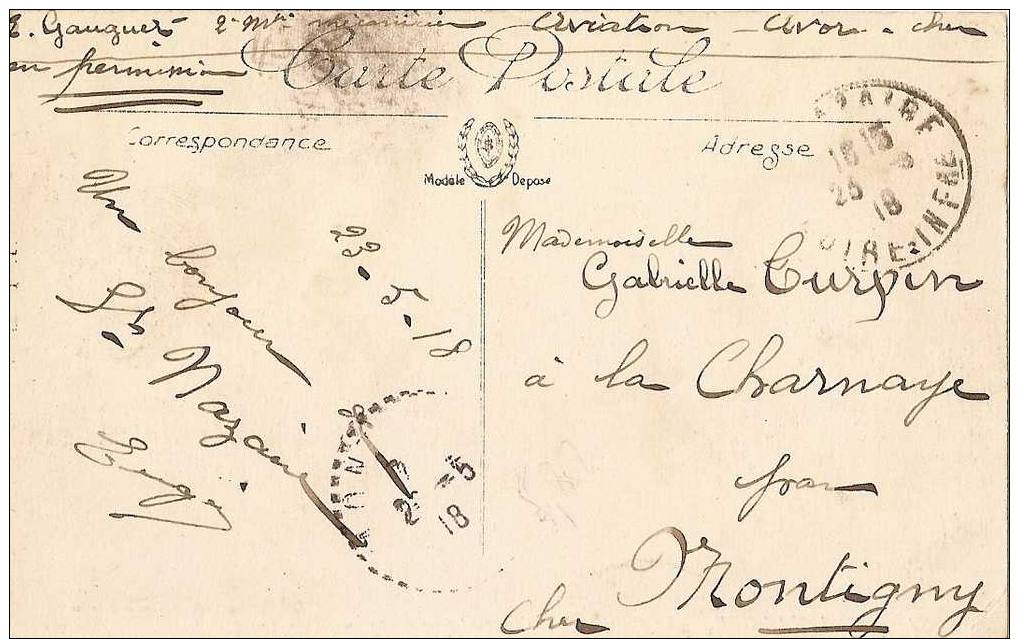 E. Gauguet 2e Mtre mécanicien Aviation - Avor - Cher
en permission
Carte Postale
Correspondance
Adresse
Modèle Déposé
Un bonjour
St Nazaire
23-5-18
Mademoiselle
Gabrielle Turpin
à la Charnaye
par
Montigny
Cher
NAZAIRE
18 15
25 5
18
LOIRE-INFRE
5
18